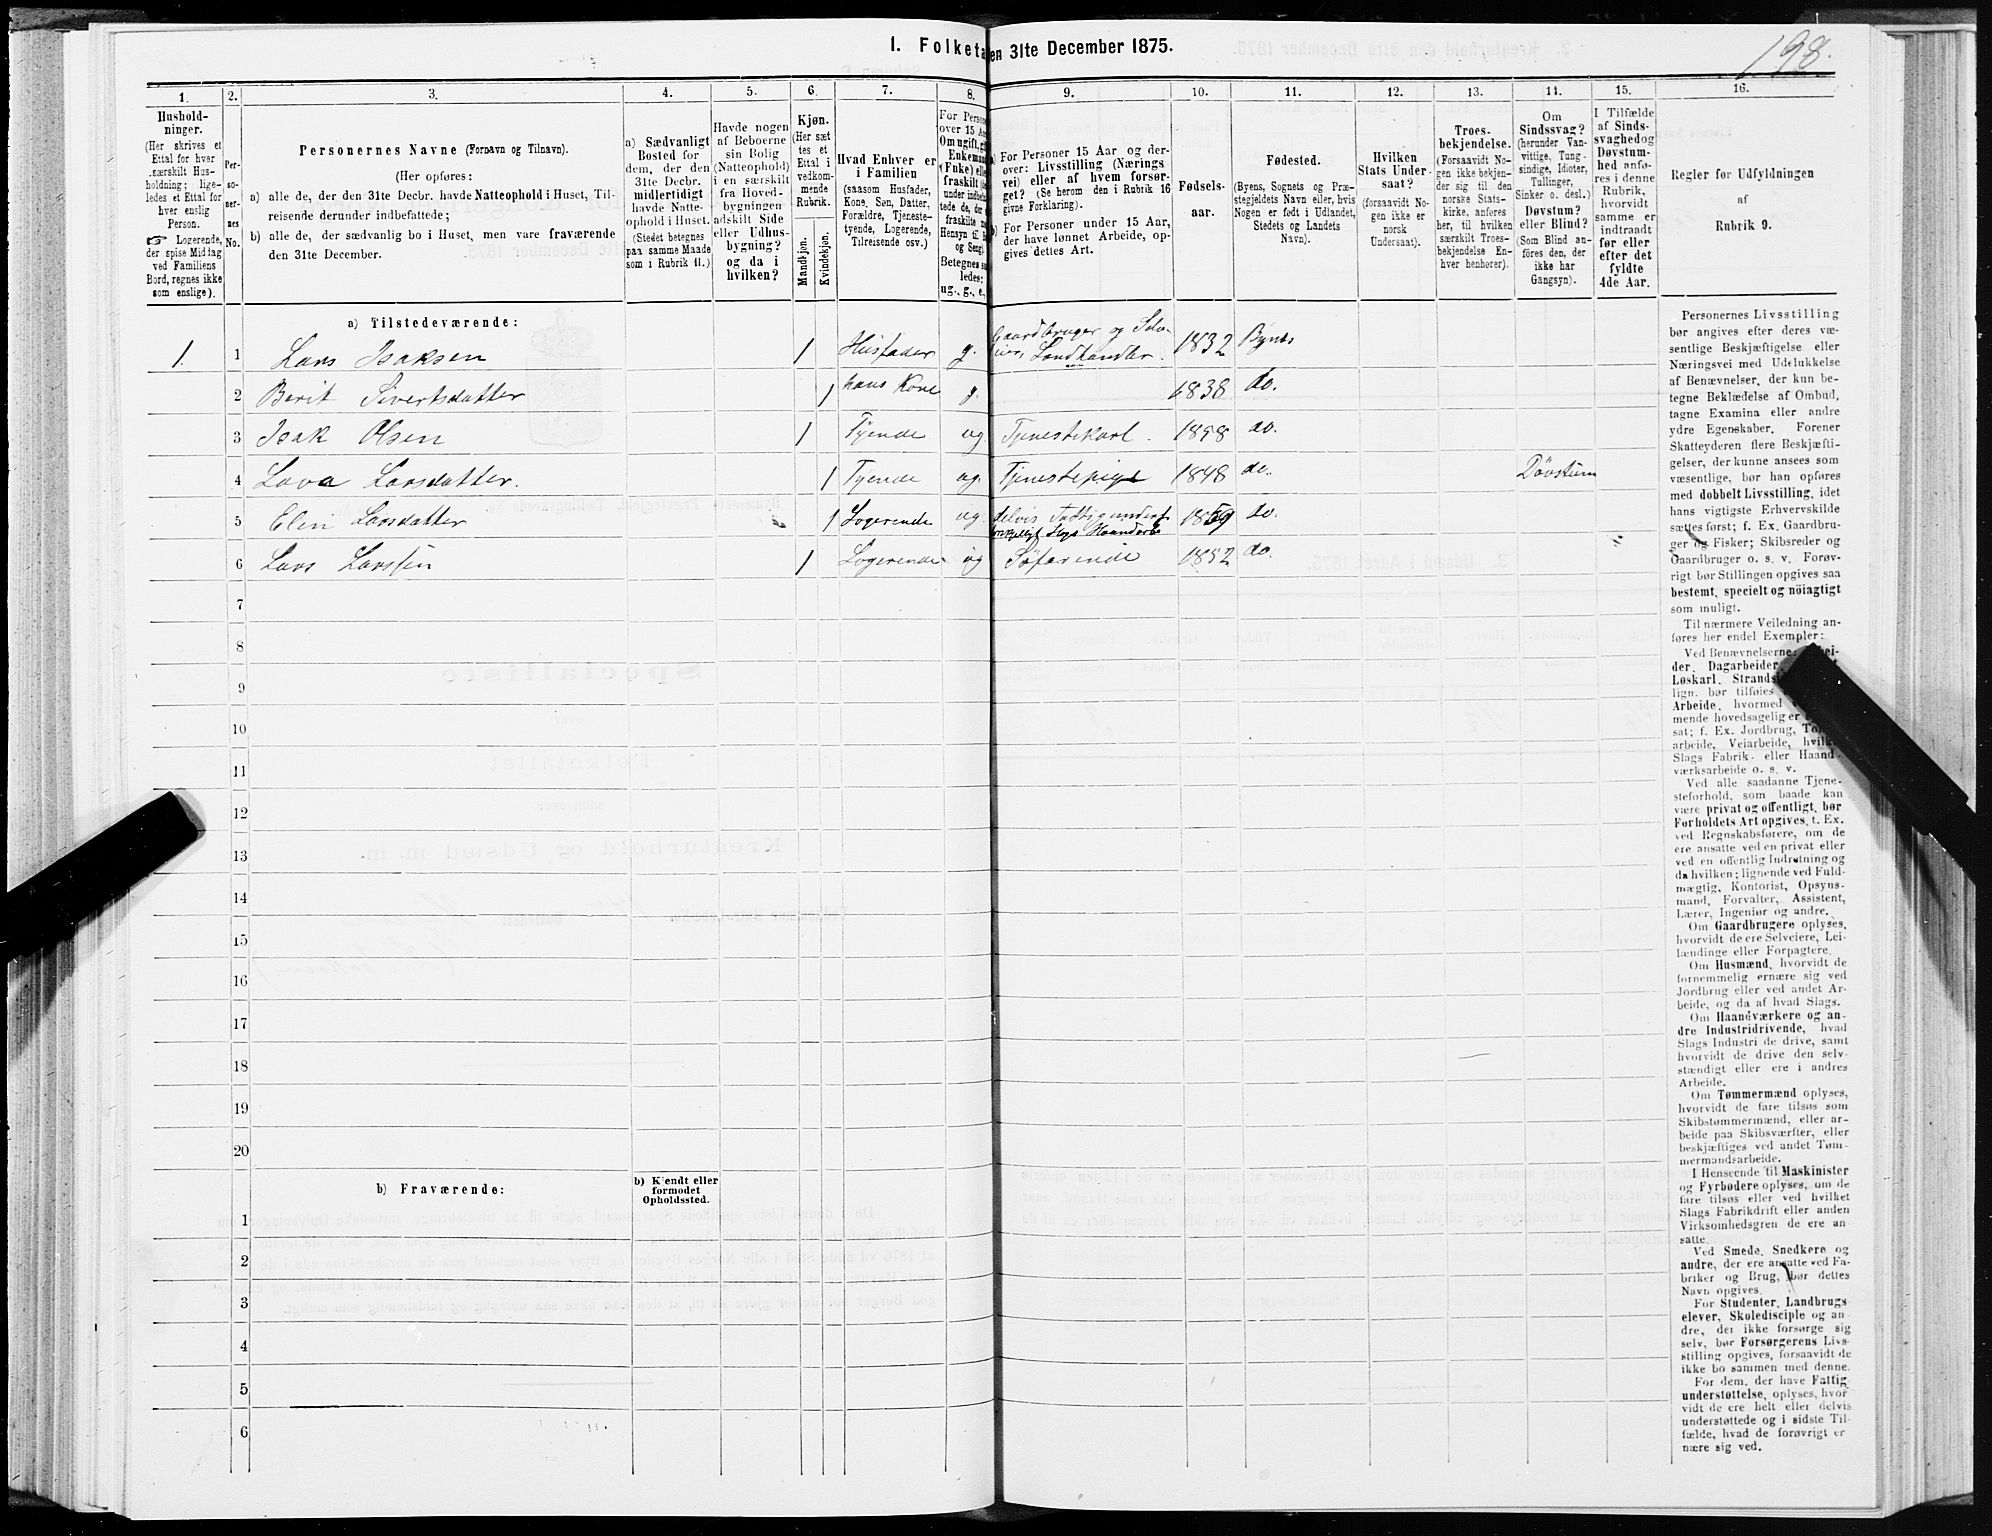 198.
1. Folketa en 31te December 1875.
1. 2. 3. 4. 5. 6. 7. 8. 9. 10. 11. 12. 13. 14. 15. 16.
Hushold-
ninger.
(Her skrives et
Ettal for hver
særskilt Hus-
holdning; lige-
ledes et Ettal for
hver enslig
Person.
☞ Logerende,
der spise Middag
ved Familiens
Bord, regnes ikke
som enslige).
Per-
so-
ner-
nes
No.
Personernes Navne (Fornavn og Tilnavn).
(Her opføres:
a) alle de, der den 31te Decbr. havde Natteophold i Huset, Til-
reisende derunder indbefattede;
b) alle de, der sædvanlig bo i Huset, men vare fraværende
den 31te December.
a) Sædvanligt
Bosted for
dem, der den
31te Decbr.
midlertidigt
havde Natte-
ophold i Huset.
(Stedet betegnes
paa samme Maade
som i Rubrik 11.)
Havde nogen
af Beboerne
sin Bolig
(Natteophold)
i en særskilt
fra Hoved-
bygningen
adskilt Side
eller Udhus-
bygning?
og da i
hvilken?
Kjøn.
(Her sæt-
tes et
Ettal i
vedkom-
mende
Rubrik.
Mandkjøn.
Kvindekjøn.
Hvad Enhver er
i Familien
(saasom Husfader,
Kone, Søn, Datter,
Forældre, Tjeneste-
tyende, Logerende,
Tilreisende osv.)
For Person
over 15 Aa
Om ugift, gif
Enkeman
(Enke) elle
fraskilt
under indbe
tede de, de
fraskilte
Hensyn til
og Seng)
Betegnes sa
ledes:
ug., g., e.,
a) For Personer 15 Aar og der-
over: Livsstilling (Nærings
vei) eller af hvem forsør-
get? (Se herom den i Rubrik 16
givne Forklaring).
b) For Personer under 15 Aar,
der have lønnet Arbeide, op-
gives dettes Art.
Fødsels-
aar.
Fødested.
(Byens, Sognets og Præ-
stegjeldets Navn eller, hvis
Nogen er født i Udlandet,
Stedets og Landets
Navn).
Hvilken
Stats Under-
saat?
(forsaavidt No-
gen ikke er
norsk
Undersaat).
Troes-
bekjendelse.
(Forsaavidt No-
gen ikke bekjen-
der sig til den
norske Stats-
kirke, anføres
her, til hvilken
særskilt Troes-
bekjendelse En-
hver henhører).
Om
Sindssvag?
(herunder Van-
vittige, Tung-
sindige, Idioter,
Tullinger,
Sinker o. desl.)
Døvstum?
eller Blind?
(Som Blind an-
føres den, der
ikke har
Gangsyn).
I Tilfælde
af Sinds-
svaghed og
Døvstum-
hed anfø-
res i denne
Rubrik,
hvorvidt
samme er
indtraadt
før eller
efter det
fyldte
4de Aar.
Regler for Udfyldningen
af
Rubrik 9.
a) Tilstedeværende:
1. 1 Lars Isaksen 1 Husfader g. Gaardbruger og Selv-
eier, Landhandler. 1832 Bynes
2 Berit Sivertsdatter 1 hans Kone g. 1838 do.
3 Isak Olsen 1 Tyende ug Tjenestekarl. 1858 do.
4 Lava Larsdatter. 1 Tyende ug. Tjenestepige 1848 do. Døvstum
5 Elen Larsdatter 1 Logerende ug delvis Fattigunderst
Slags Haandarb 1859 do.
6 Lars Larssen 1 Logerende ug Søfarende 1852 do.
7
8
9
10
11
12
13
14
15
16
17
18
19
20
b) Fraværende:
b) Kjendt eller
formodet
Opholdssted.
1
2
3
4
5
6
Personernes Livsstilling
bør angives efter deres væ-
sentlige Beskjæftigelse eller
Næringsvei med Udelukkelse
af Benævnelser, der kun be-
tegne Beklædelse af Ombud,
tagne Examina eller andre
ydre Egenskaber. Forener
Skatteyderen flere Beskjæfti-
gelser, der kunne ansees som
væsentlige, bør han opføres
med dobbelt Livsstilling, idet
hans vigtigste Erhvervskilde
sættes først; f. Ex. Gaardbru-
ger og Fisker; Skibsreder og
Gaardbruger o. s. v. Forøv-
rigt bør Stillingen opgives saa
bestemt, specielt og nöiagtigt
som muligt.
Til nærmere Veiledning an-
føres her endel Exempler:
Ved Benævnelserne: bei-
der, Dagarbeider,
Løskarl, Strands
lign. bør tilføies
Arbeide, hvormed
mende hovedsagelig er
sat; f. Ex. Jordbrug, To
arbeide, Veiarbeide, hvil
Slags Fabrik- eller Haand-
værksarbeide o. s. v.
Ved alle saadanne Tjene-
steforhold, som baade kan
være privat og offentligt, bør
Forholdets Art opgives, t. Ex.
ved Regnskabsførere, om de
ere ansatte ved en privat eller
ved en offentlig Indretning og
da hvilken; lignende ved Fuld-
mægtig, Kontorist, Opsyns-
mand, Forvalter, Assistent,
Lærer, Ingeniør og andre.
Om Gaardbrugere oplyses,
hvorvidt de ere Selveiere, Lei-
lændinge eller Forpagtere.
Om Husmænd, hvorvidt de
fornemmelig ernære sig ved
Jordbrug eller ved andet Ar-
beide, og da af hvad Slags.
Om Haandværkere og an-
dre Industridrivende, hvad
Slags Industri de drive, samt
hvorvidt de drive den selv-
stændigt eller ere i andres
Arbeide.
Om Tømmermænd oplyses,
hvorvidt de fare tilsøs som
Skibstømmermænd, eller ar-
beide paa Skibsværfter, eller
beskjæftiges ved andet Tøm-
mermandsarbeide.
I Henseende til Maskinister
og Fyrbødere oplyses, om de
fare tilsøs eller ved hvilket
Slags Fabrikdrift eller anden
Virksomhedsgren de ere an-
satte.
Ved Smede, Snedkere og
andre, der ere ansatte ved Fa-
briker og Brug, bør dettes
Navn opgives.
For Studenter, Landbrugs-
elever, Skoledisciple og an-
dre, der ikke forsørge sig
selv, bør Forsørgerens Livs-
stilling opgives, forsaavidt de
ikke bo sammen med denne.
For dem, der have Fattig-
understøttelse, oplyses, hvor
vidt de ere helt eller delvis
understøttede og i sidste Til-
fælde, hvad de forøvrigt er
nære sig ved.